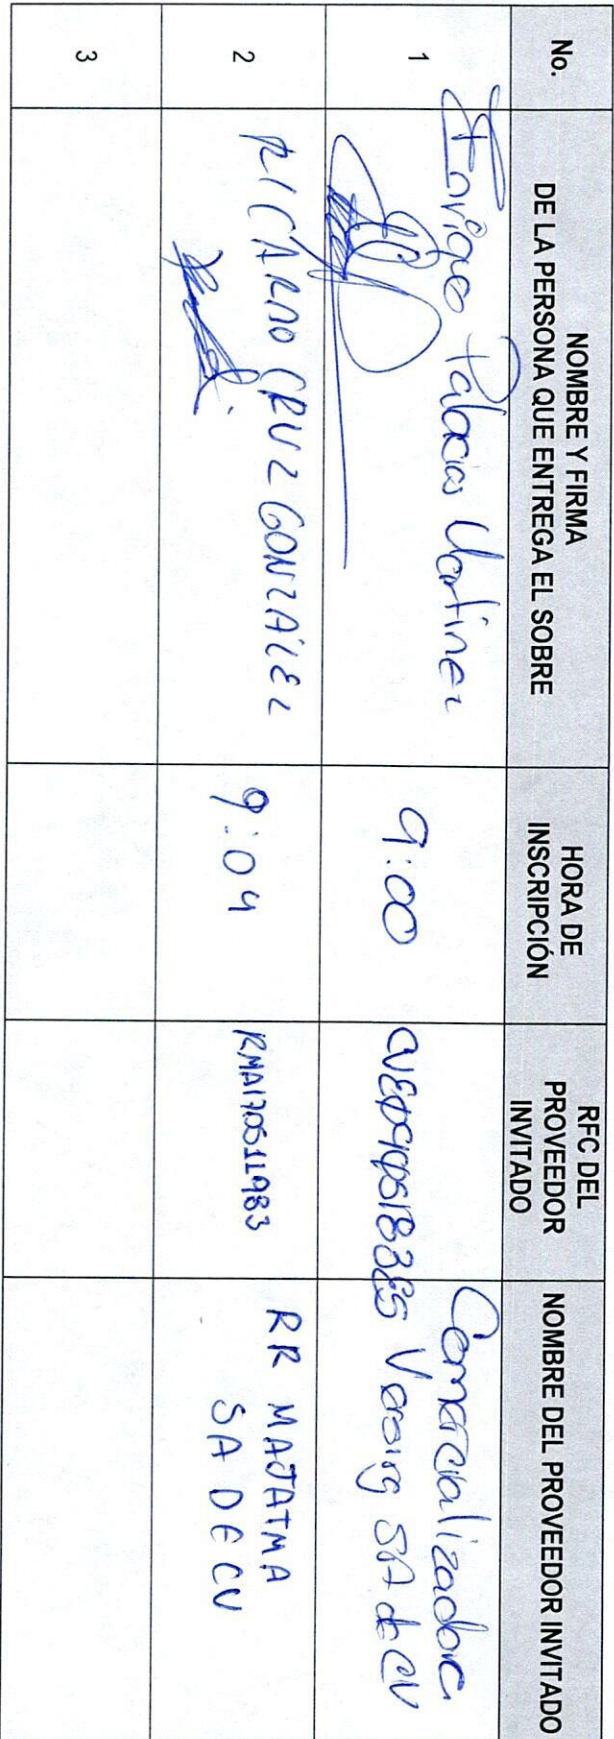 No.
NOMBRE Y FIRMA
DE LA PERSONA QUE ENTREGA EL SOBRE
HORA DE
INSCRIPCIÓN
RFC DEL
PROVEEDOR
INVITADO
NOMBRE DEL PROVEEDOR INVITADO
1
Enrique Palacios Martinez
9:00
Comercializadora
SA de CV
2
RICARDO CRUZ GONZALEZ
9:04
RMA170511983
RR MAJATMA
SA DE CV
3